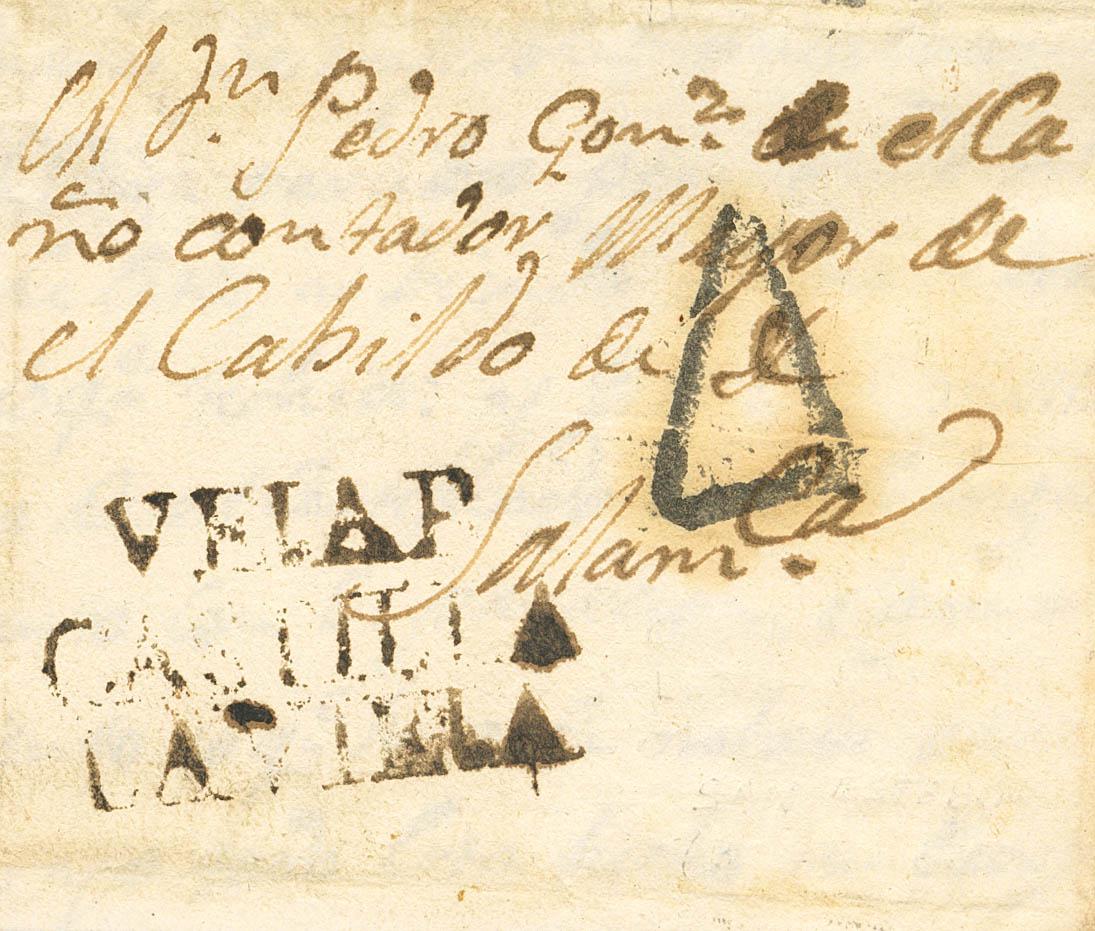 A Dn. Pedro Gonz. de el Ca
ño contador Mayor de
el Cabildo de de
Salam.ca
VEJAR
CASTILLA
LA VIEJA